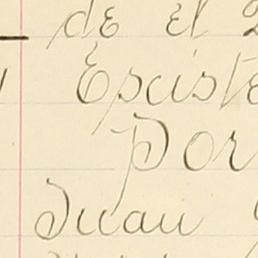 de el
Existe
Por
Juan